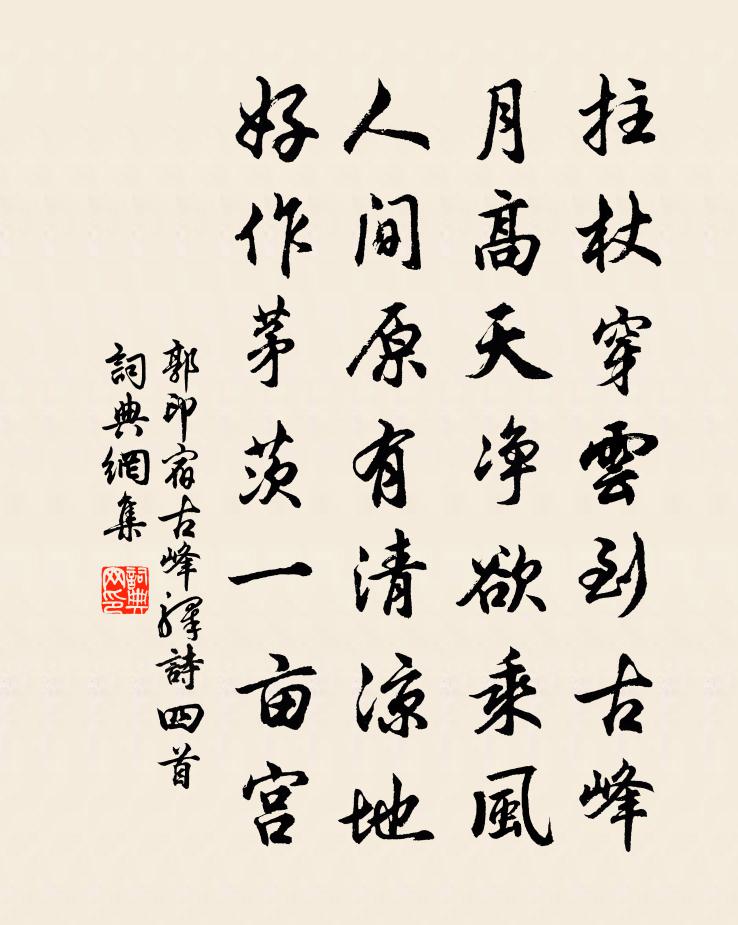 拄杖穿雲到古峰
月高天净欲乘風
人間原有清涼地
好作茅茨一亩宮
郭印宿古峰驛詩四首
詞典網集
詞典网印